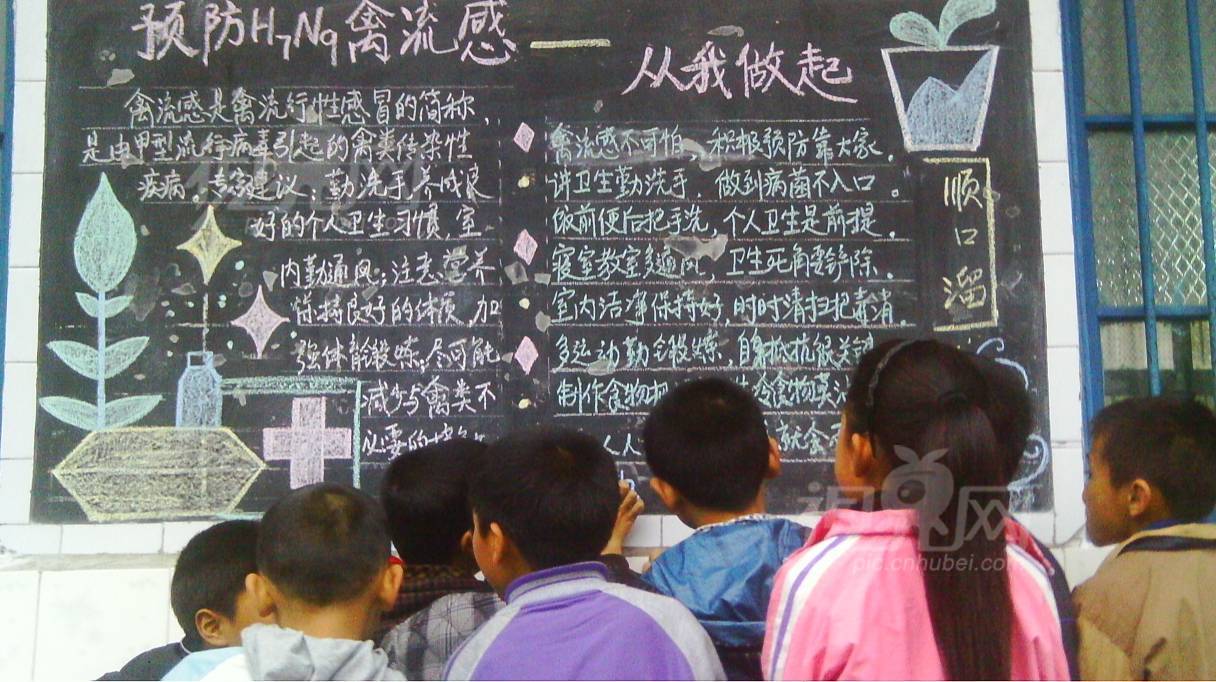 预防H7N9禽流感 — 从我做起
禽流感是禽流行性感冒的简称,
是由甲型流行病毒引起的禽类传染性
疾病。专家建议:勤洗手养成良
好的个人卫生习惯,室
内勤通风;注意营养
保持良好的体质,加
强体育锻炼,尽可能
减少与禽类不
必要的接
禽流感不可怕,积极预防靠大家。
讲卫生勤洗手,做到病菌不入口。
饭前便后把手洗,个人卫生是前提。
寝室教室多通风,卫生死角要铲除。
室内洁净保持好,时时清扫把毒消。
多运动勤锻炼,自身抵抗很关键
制作食物 冷食物
人人 就会
顺口溜
视界网
pic.cnhubei.com